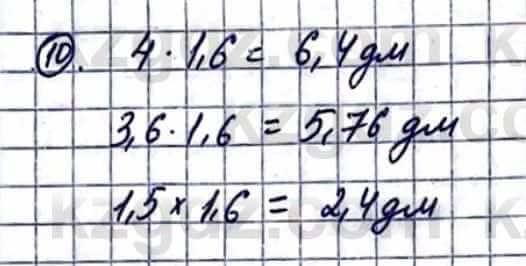 10. 4 · 1,6 = 6,4 дм
3,6 · 1,6 = 5,76 дм
1,5 × 1,6 = 2,4 дм